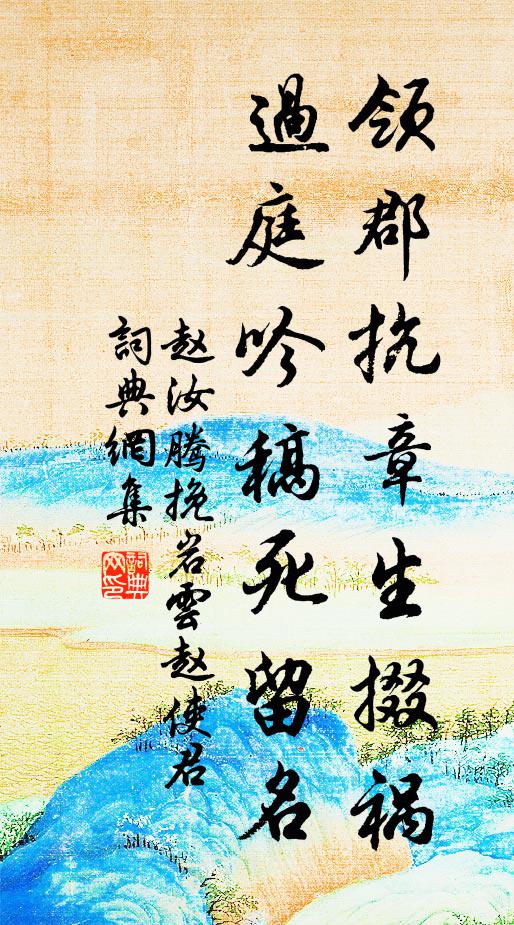 領郡抗章生掇禍
過庭吟稿死留名
赵汝腾挽岩雲赵使君
詞典網集
詞典网印